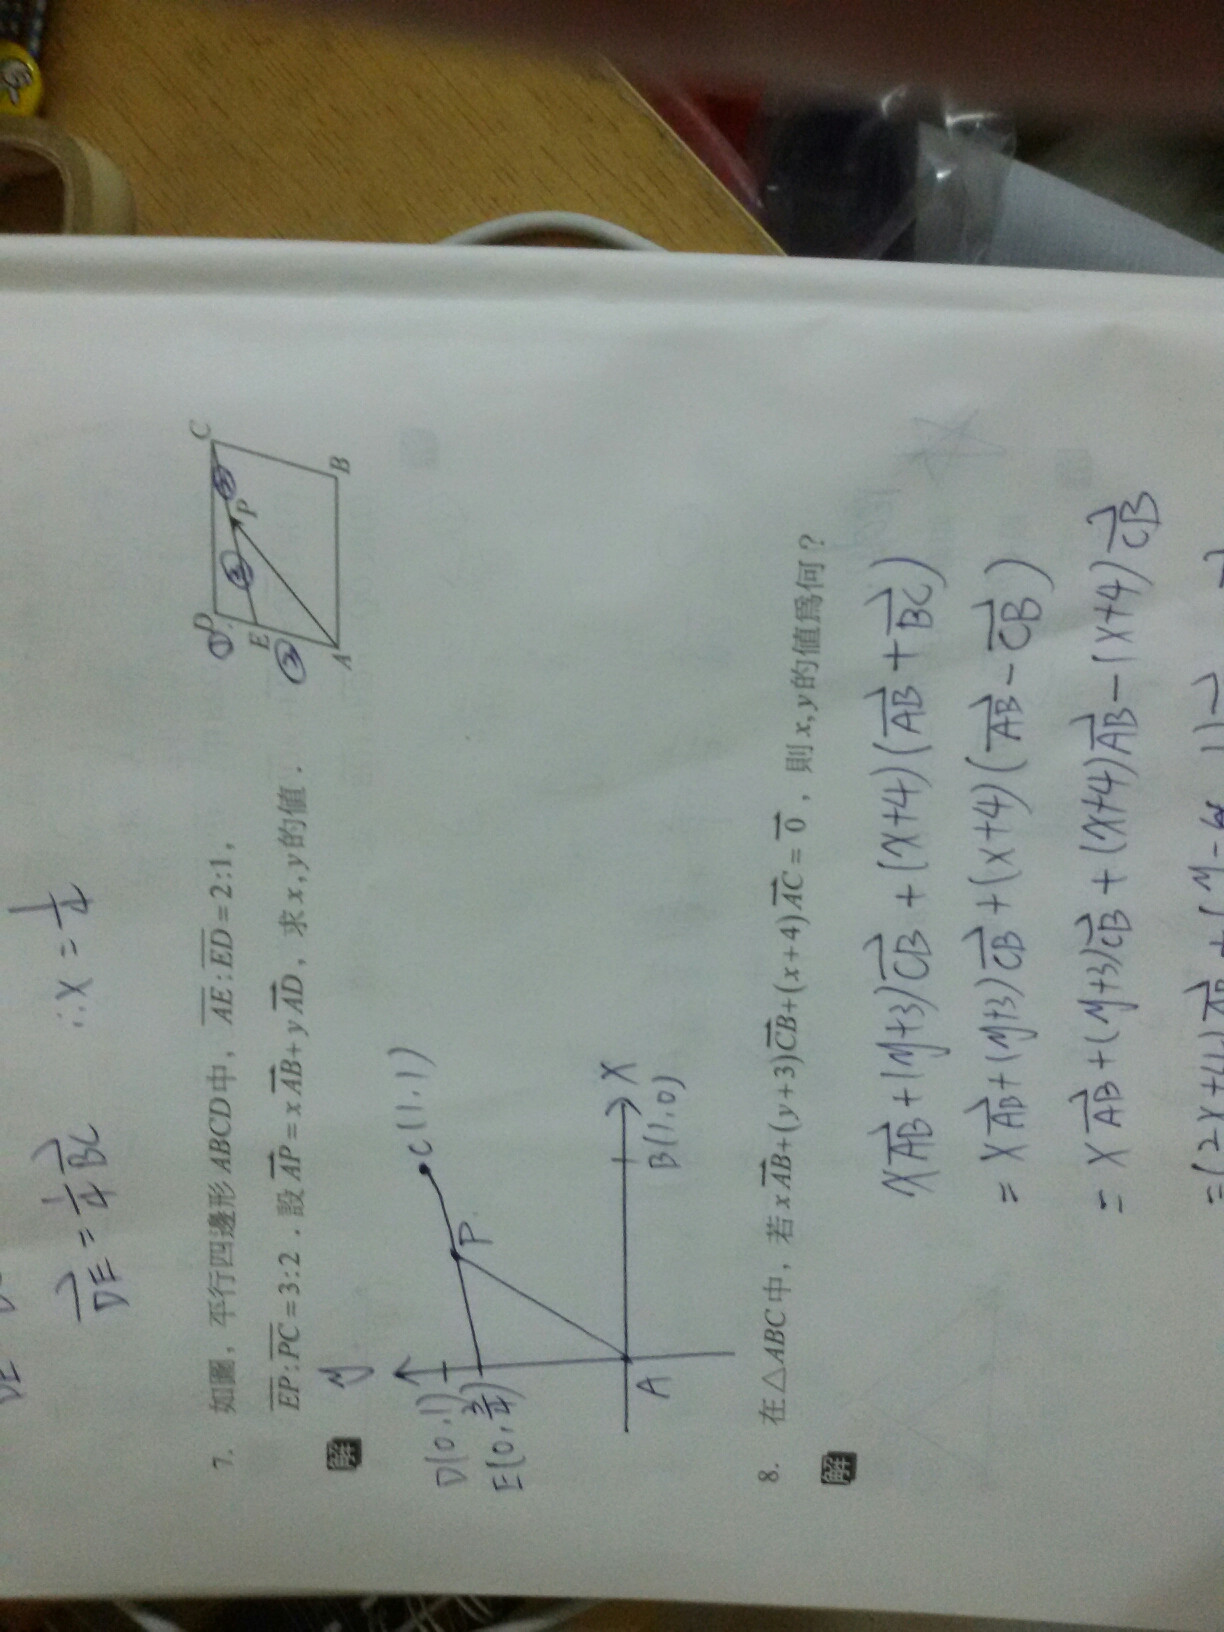 DE = 1/4 BC ∴x = 1/4
7. 如圖，平行四邊形ABCD中，AE:ED=2:1，
EP:PC=3:2．設AP=xAB+yAD，求x,y的值．
① D C
③ ② E P
② A B
解
y
D(0,1) C(1,1)
E(0,3/4) P
A B(1,0) X
8. 在△ABC中，若xAB+(y+3)CB+(x+4)AC=0，則x,y的值爲何？
解
xAB+(y+3)CB+(x+4)(AB+BC)
=xAB+(y+3)CB+(x+4)(AB-CB)
=xAB+(y+3)CB+(x+4)AB-(x+4)CB
=(2x+4)